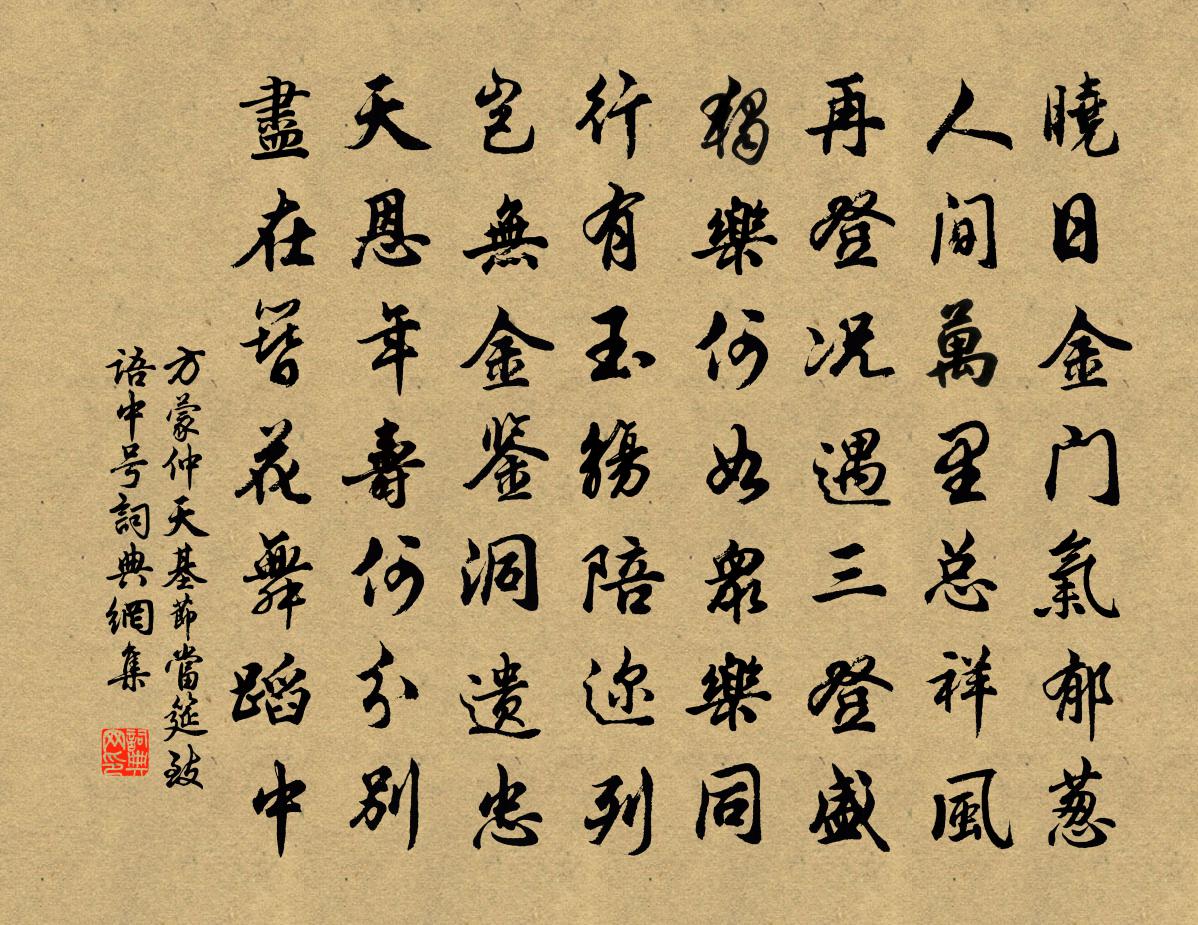 曉日金门氣郁葱
人间萬里总祥風
再登况遇三登盛
獨樂何如眾樂同
行有玉觴陪迩列
岂無金鉴洞遗忠
天恩年壽何分別
盡在簪花舞蹈中
方蒙仲天基節當筵致
語中号詞典網集
詞典网印